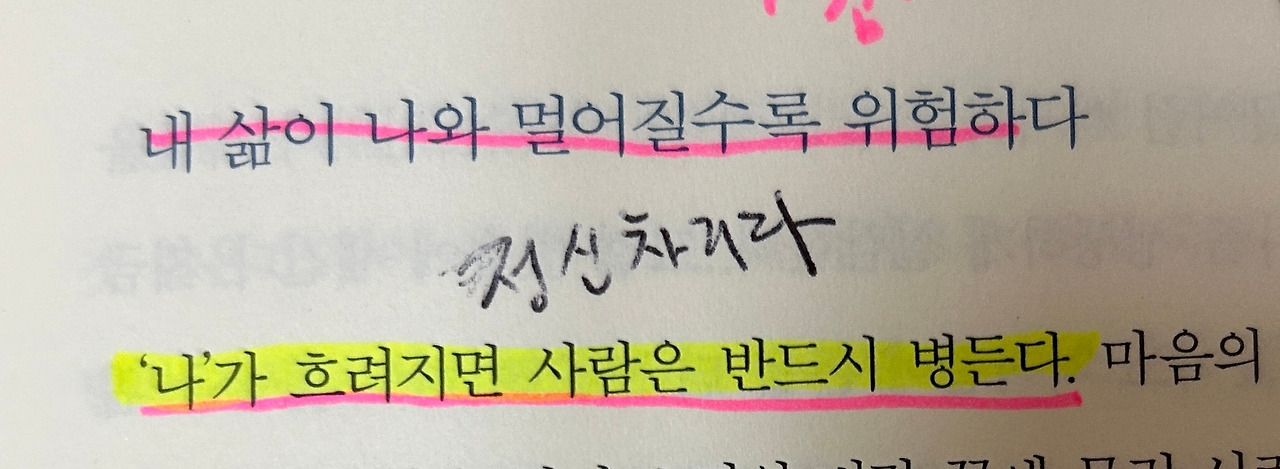 내 삶이 나와 멀어질수록 위험하다
정신차리라
‘나’가 흐려지면 사람은 반드시 병든다. 마음의